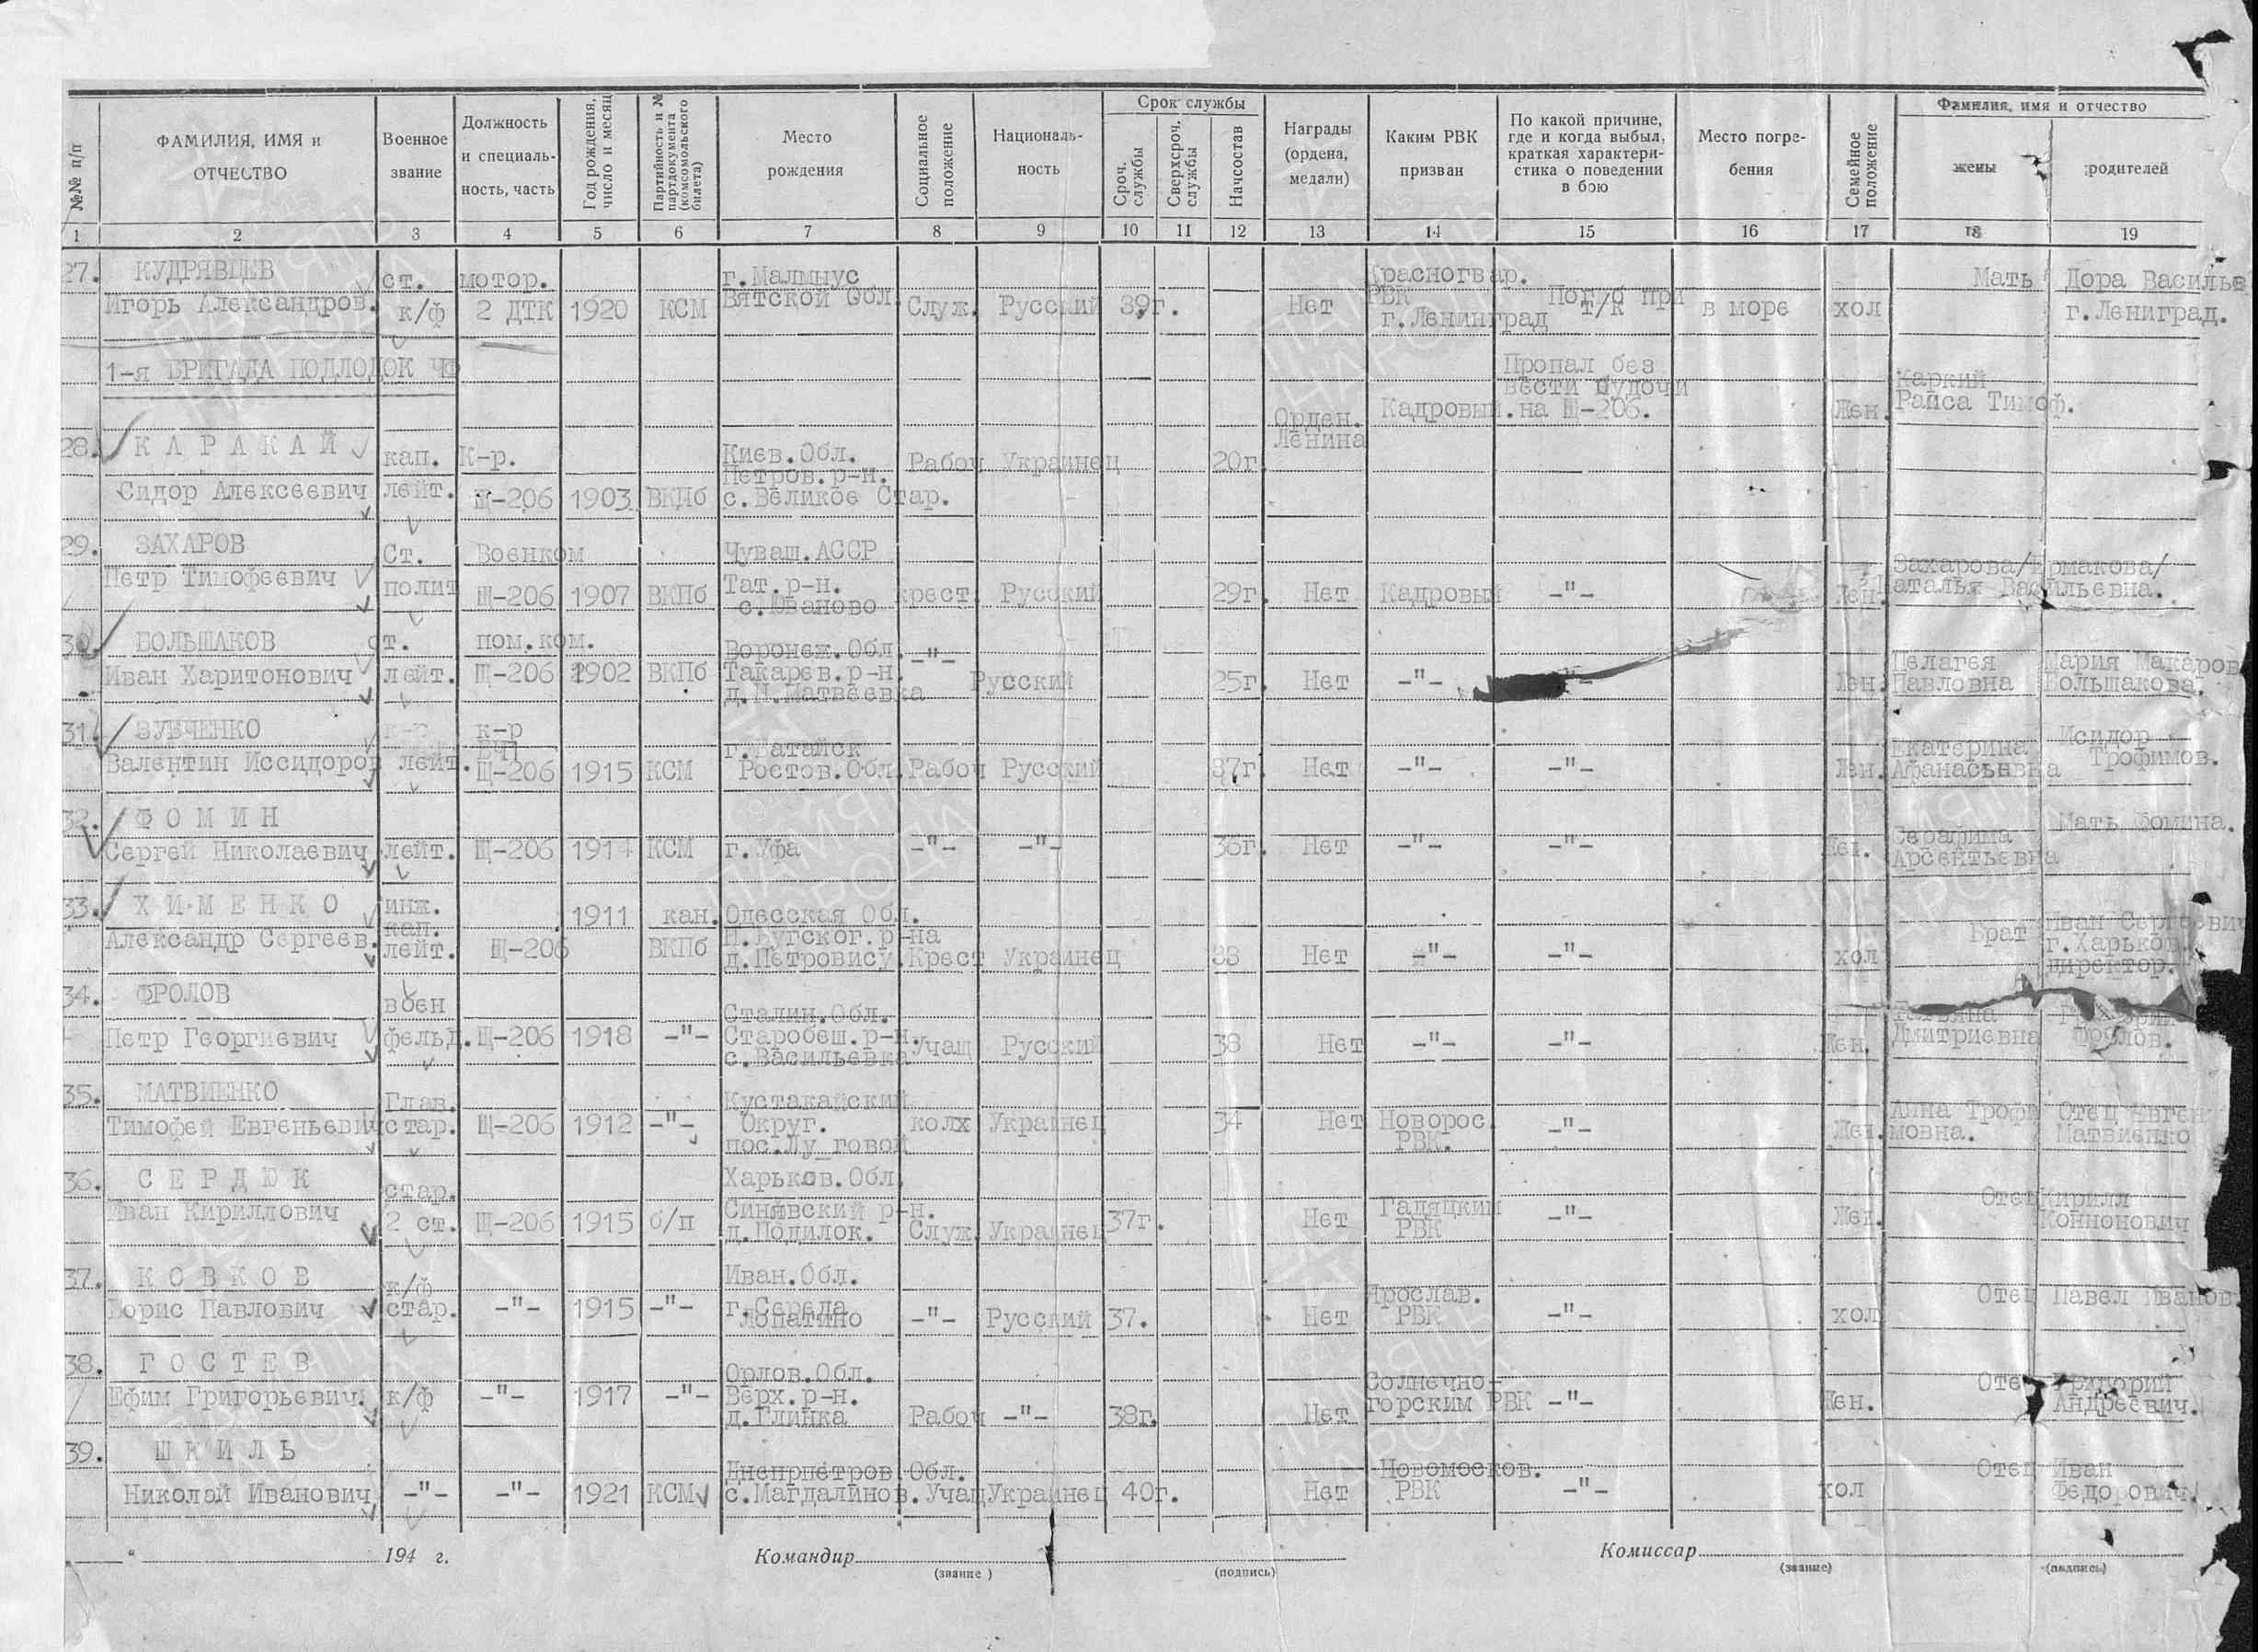 №№ п/п
ФАМИЛИЯ, ИМЯ и ОТЧЕСТВО
Военное звание
Должность и специаль-ность, часть
Год рождения, число и месяц
Партийность и № партдокумента (комсомольского билета)
Место рождения
Социальное положение
Националь-ность
Срок службы
Сроч. службы
Сверхсроч. службы
Начсостав
Награды (ордена, медали)
Каким РВК призван
По какой причине, где и когда выбыл, краткая характери-стика о поведении в бою
Место погре-бения
Семейное положение
Фамилия, имя и отчество
жены
родителей
1 2 3 4 5 6 7 8 9 10 11 12 13 14 15 16 17 18 19
27. КУДРЯВЦЕВ ст. мотор. г.Малмнус Красногвар. Мать Дора Василье
Игорь Александров. к/ф 2 ДТК 1920 КСМ Вятской Обл. Служ. Русский 39г. Нет РВК г.Ленинград Пог/б при т/к в море хол г.Лениград.
1-я БРИГАДА ПОДЛОДОК ЧФ
Пропал без вести будочи на Щ-206.
28. КАРАКАЙ кап. К-р. Киев.Обл. Рабоч Украинец 20г Орден. Ленина Кадровый. Жен. Каркий Раиса Тимоф.
Сидор Алексеевич лейт. Щ-206 1903 ВКПб Петров.р-н. с.Великое Стар.
29. ЗАХАРОВ Ст. Военком Чуваш.АССР Захарова/Ермакова/
Петр Тимофеевич полит Щ-206 1907 ВКПб Тат.р-н. с.Юваново крест. Русский 29г. Нет Кадровый -"- Жен. Наталья Васильевна.
30. БОЛЬШАКОВ ст. пом.ком. Воронеж.Обл. -"- Пелагея Мария Макаров
Иван Харитонович лейт. Щ-206 1902 ВКПб Такарев.р-н. д.Н.Матвеевка Русский 25г. Нет -"- Жен. Павловна Большакова.
31. ЗУБЧЕНКО к-р к-р БЧ1 г.Батайск Екатерина Исидор
Валентин Иссидоров лейт. Щ-206 1915 КСМ Ростов.Обл. Рабоч Русский 37г. Нет -"- -"- Жен. Афанасьевна Трофимов.
32. ФОМИН Серафима Мать Фомина.
Сергей Николаевич лейт. Щ-206 1917 КСМ г.Уфа -"- -"- 36г. Нет -"- -"- Жен. Арсентьевна
33. ХИМЕНКО инж. 1911 кан. Одесская Обл. Брат Иван Сергеевич
Александр Сергеев. кап. лейт. Щ-206 ВКПб Н.Бугског.р-на д.Петровису. Крест Украинец 38 Нет -"- -"- хол г.Харьков. директор.
34. ФРОЛОВ воен Сталин.Обл.
Петр Георгиевич фельд. Щ-206 1918 -"- Старобеш.р-н. с.Васильевка Учащ Русский 38 Нет -"- -"- Жен. Дмитриевна Фролов.
35. МАТВИЕНКО Глав. Кустакайский Анна Трофи Отец Евген
Тимофей Евгеньевич стар. Щ-206 1912 -"- Округ. пос.Лу_говой колх Украинец 34 Нет Новорос. РВК. -"- Жен. мовна. Матвиенко
36. СЕРДЮК стар. Харьков.Обл. Отец Кирилл
Иван Кириллович 2 ст. Щ-206 1915 б/п Синявский р-н. д.Подилок. Служ. Украинец 37г. Нет Гадяцкий РВК -"- Жен. Коннонович
37. КОВКОВ к/ф Иван.Обл. Ярослав. Отец Павел Иванов.
Борис Павлович стар. -"- 1915 -"- г.Середа Лопатино -"- Русский 37. Нет РВК -"- хол
38. ГОСТЕВ Орлов.Обл. Солнечно- Отец Григорий
Ефим Григорьевич. к/ф -"- 1917 -"- Верх.р-н. д.Глинка Рабоч -"- 38г. Нет горским РВК -"- Жен. Андреевич.
39. ШКИЛЬ Днепрпетров.Обл. Новомосков. Отец Иван
Николай Иванович -"- -"- 1921 КСМ с.Магдалинов. Учащ Украинец 40г. Нет РВК -"- хол Федорович.
" 194 г. Командир (звание) (подпись) Комиссар (звание) (подпись)